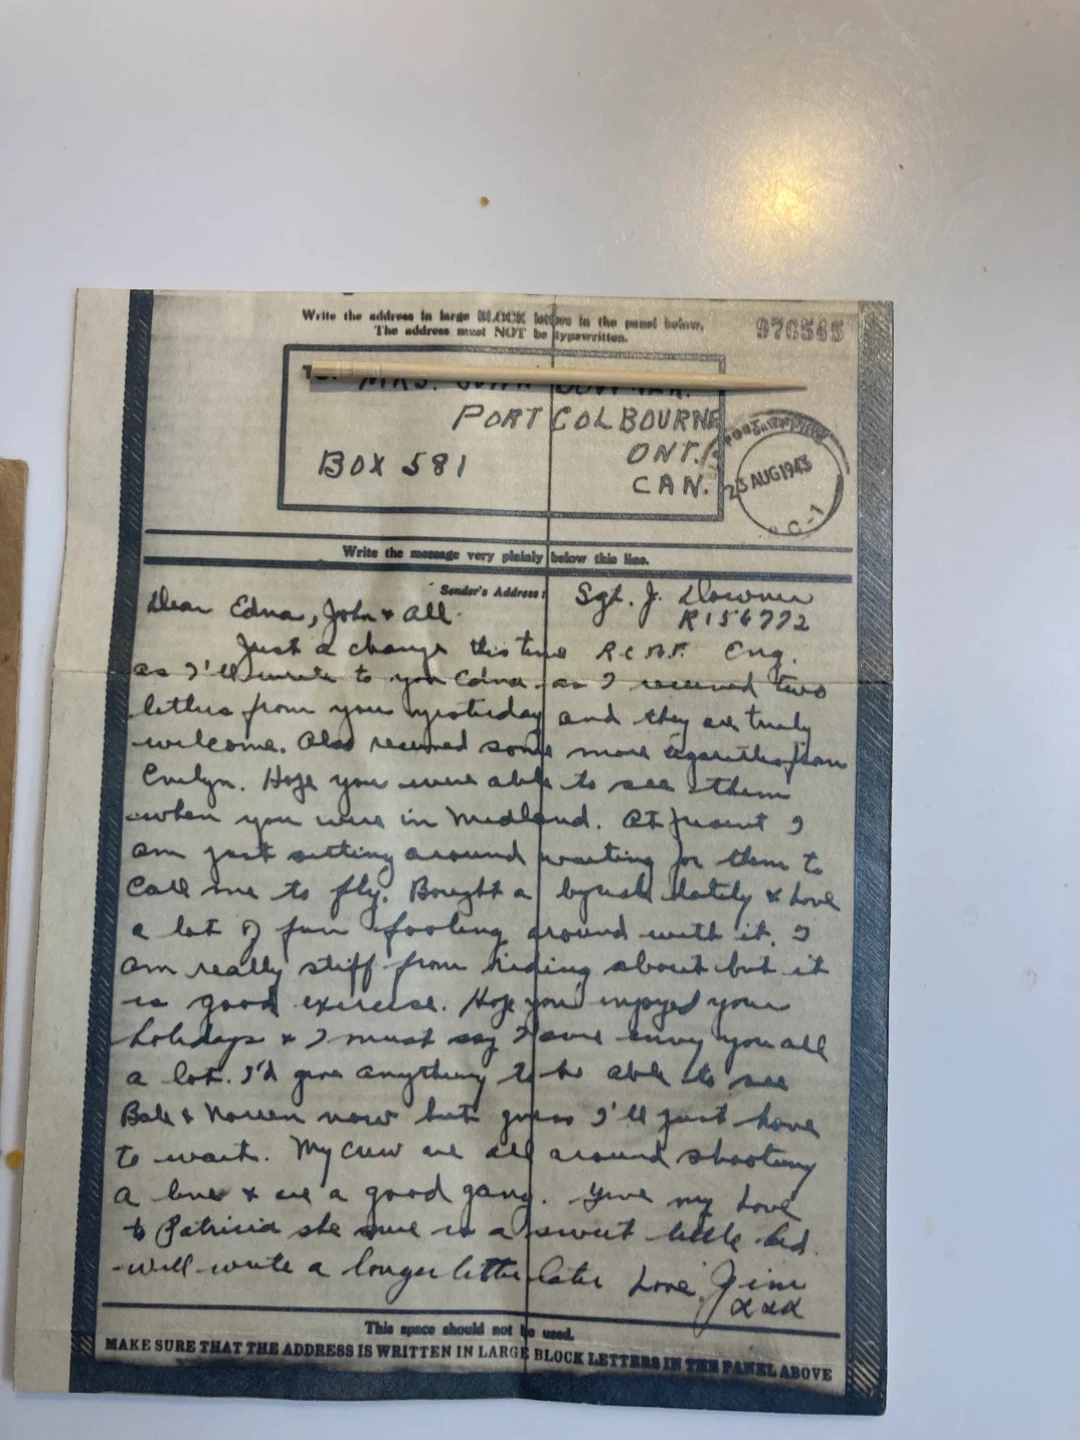 Write the address in large BLOCK letters in the panel below,
The address must NOT be typewritten.
976545
TO: MRS. JOHN
PORT COLBOURNE
ONT.
BOX 581
CAN.
POST
23 AUG 1943
Write the message very plainly below this line.
Sender's Address: Sgt. J. Downer
Dear Edna, John & All. R156772
Just a change this time R.C.A.F. Eng.
as I'll write to you Edna as I received two
letters from you yesterday and they are truly
welcome. Also received some more cigarettes from
Evelyn. Hope you were able to see them
when you were in Midland. At present I
am just sitting around waiting for them to
call me to fly. Bought a lately & have
a lot of fun fooling around with it. I
am really stiff from riding about but it
is good exercise. Hope you enjoyed your
holidays & I must say I sure envy you all
a lot. I'd give anything to be able to see
& now but guess I'll just have
to wait. My crew are all around shooting
a line & are a good gang. Give my love
to Patricia she sure is a sweet little kid.
will write a longer letter later Love, Jim
xxx
This space should not be used.
MAKE SURE THAT THE ADDRESS IS WRITTEN IN LARGE BLOCK LETTERS IN THE PANEL ABOVE